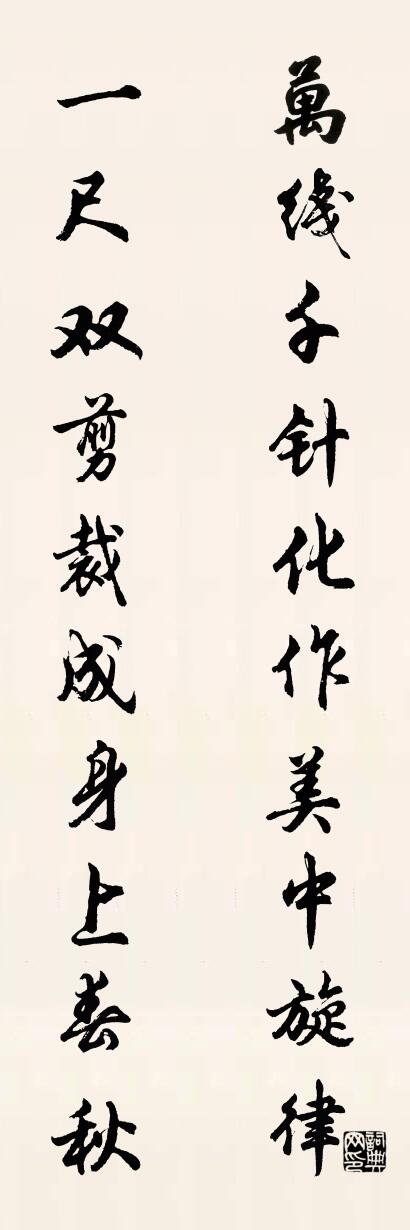 萬线千针化作美中旋律
一尺双剪裁成身上春秋
詞典网印